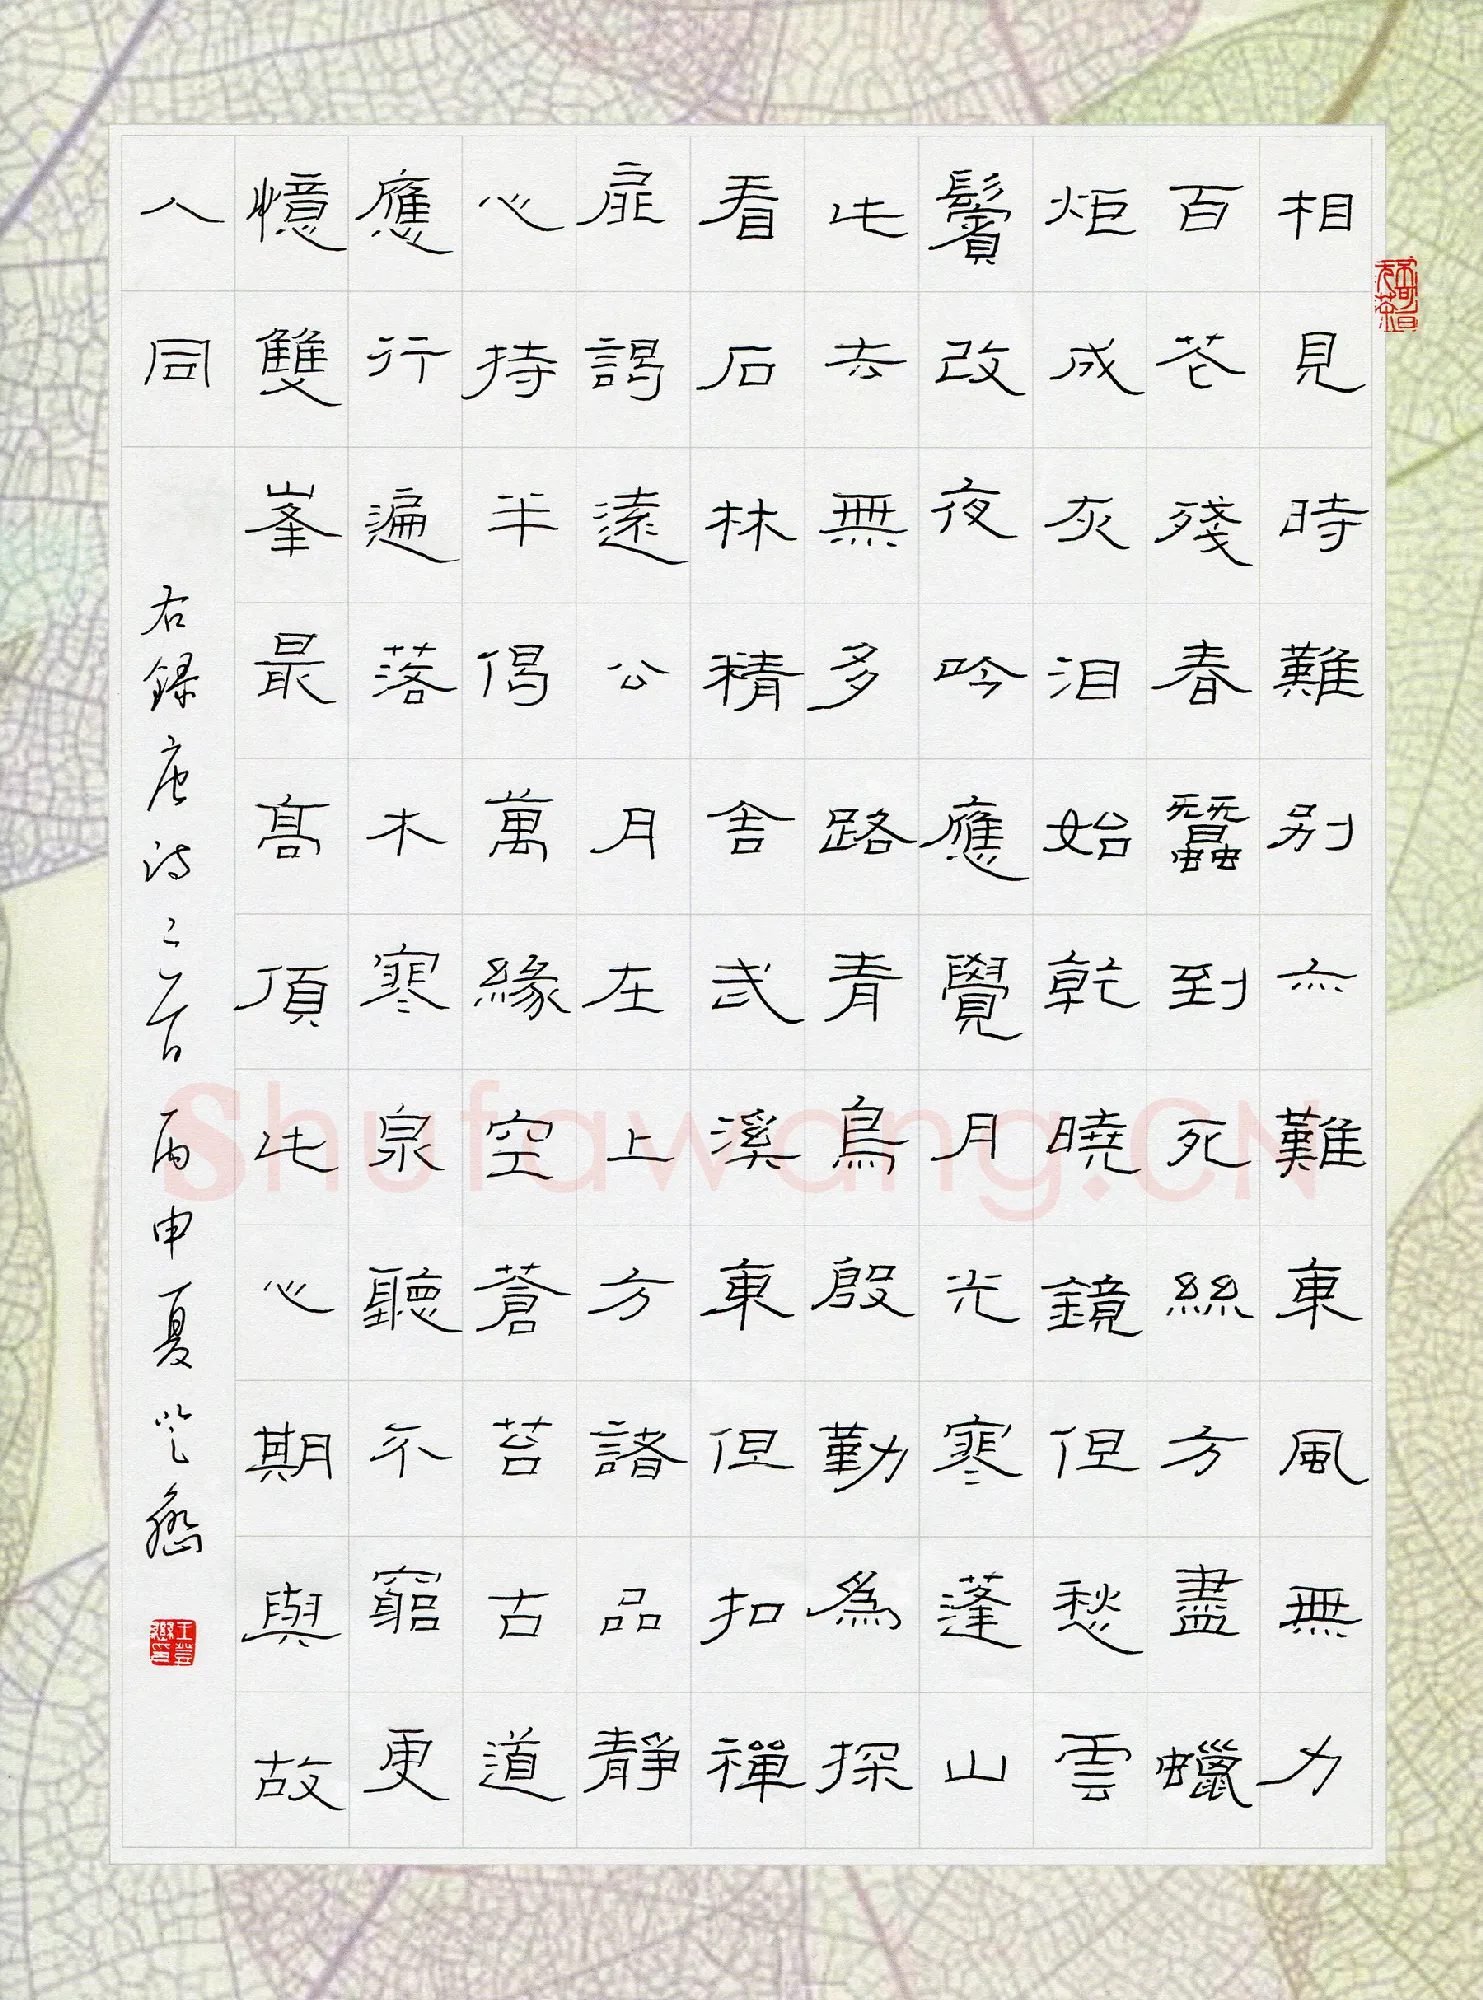 相見時難別亦難東風無力
百花殘春蠶到死絲方盡蠟
炬成灰泪始乾曉鏡但愁雲
鬢改夜吟應覺月光寒蓬山
此去無多路青鳥殷勤為探
看石林精舍武溪東但扣禪
扉謁遠公月在上方諸品靜
心持半偈萬緣空蒼苔古道
應行遍落木寒泉聽不窮更
憶雙峯最高頂此心期與故
人同
右録唐詩二首丙申夏登
Shufawang.CN